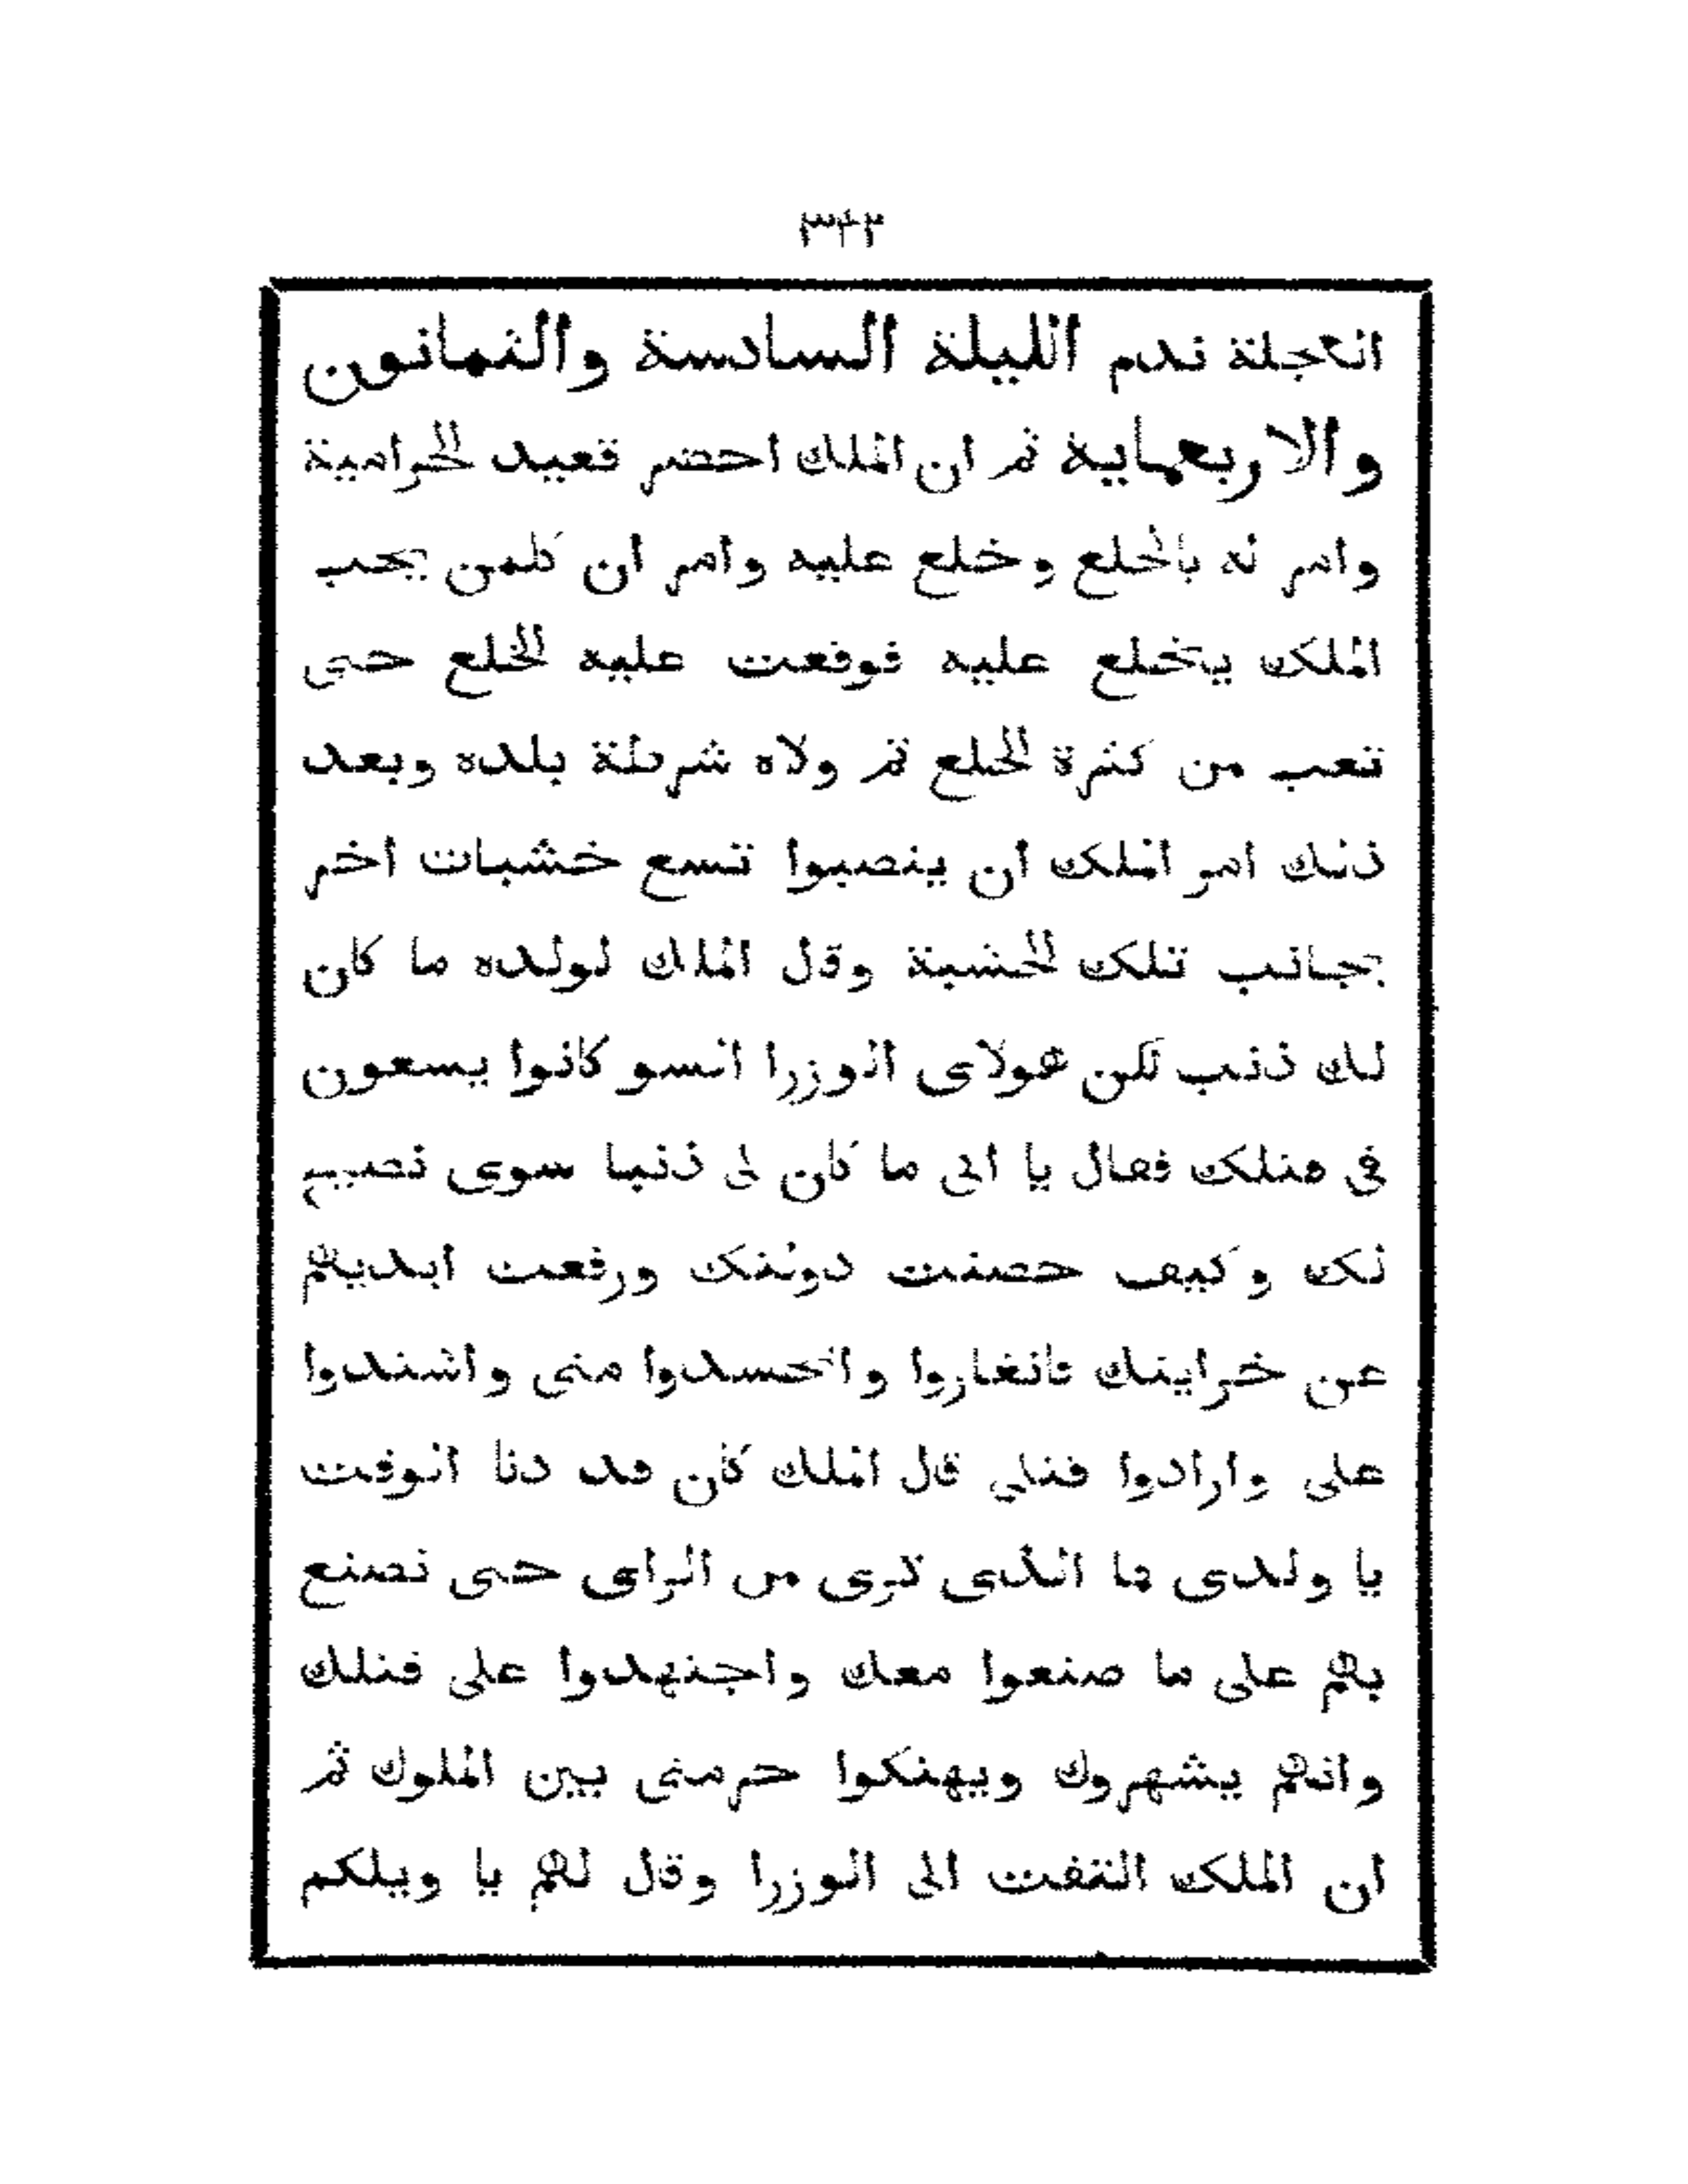 ٣٤٢
العجلة ندم الليلة السادسة والثمانون
والاربعماية ثم ان الملك احضر قعيد الحرامية
وامر له بالخلع وخلع عليه وامر ان كلمن يحب
الملك يخلع عليه فوقعت عليه الخلع حتى
تعب من كثرة الخلع ثم ولاه شرطة بلده وبعد
ذلك امر الملك ان ينصبوا تسع خشبات اخر
بجانب تلك الخشبة وقال الملك لولده ما كان
لك ذنب لكن هولاى الوزرا السو كانوا يسعون
فى قتلك فقال يا ابى ما كان لى ذنبا سوى نصيح
لك وكيف حصنت دولتك ورفعت ايديهم
عن خزاينك فانغاروا وانحسدوا منى واشتدوا
على وارادوا قتلى قال الملك كان قد دنا الوقت
يا ولدى ما الذى ترى من الراى حتى نصنع
بهم على ما صنعوا معك واجتهدوا على قتلك
وانهم يشهروك ويهتكوا حرمتى بين الملوك ثم
ان الملك التفت الى الوزرا وقال لهم يا ويلكم